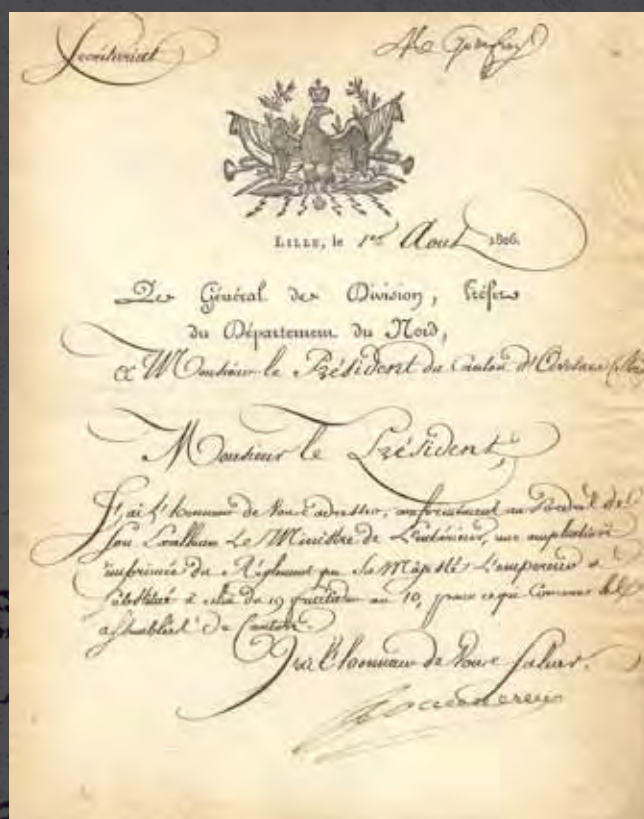 Secrétariat
LILLE, le 1er Aout 1806.
Le Général de Division, Préfet
du Département du Nord,
A Monsieur le Président du Canton d'
Monsieur le Président,
J'ai l'honneur de vous adresser, conformément au de
Son Le Ministre de L'intérieur, une ampliation
imprimée du Réglement que Sa Majesté L'empereur a
Substitué à celui du 19 fructidor an 10, pour ce qui Concerne les
assemblées de Canton.
J'ai l'honneur de Vous Saluer.